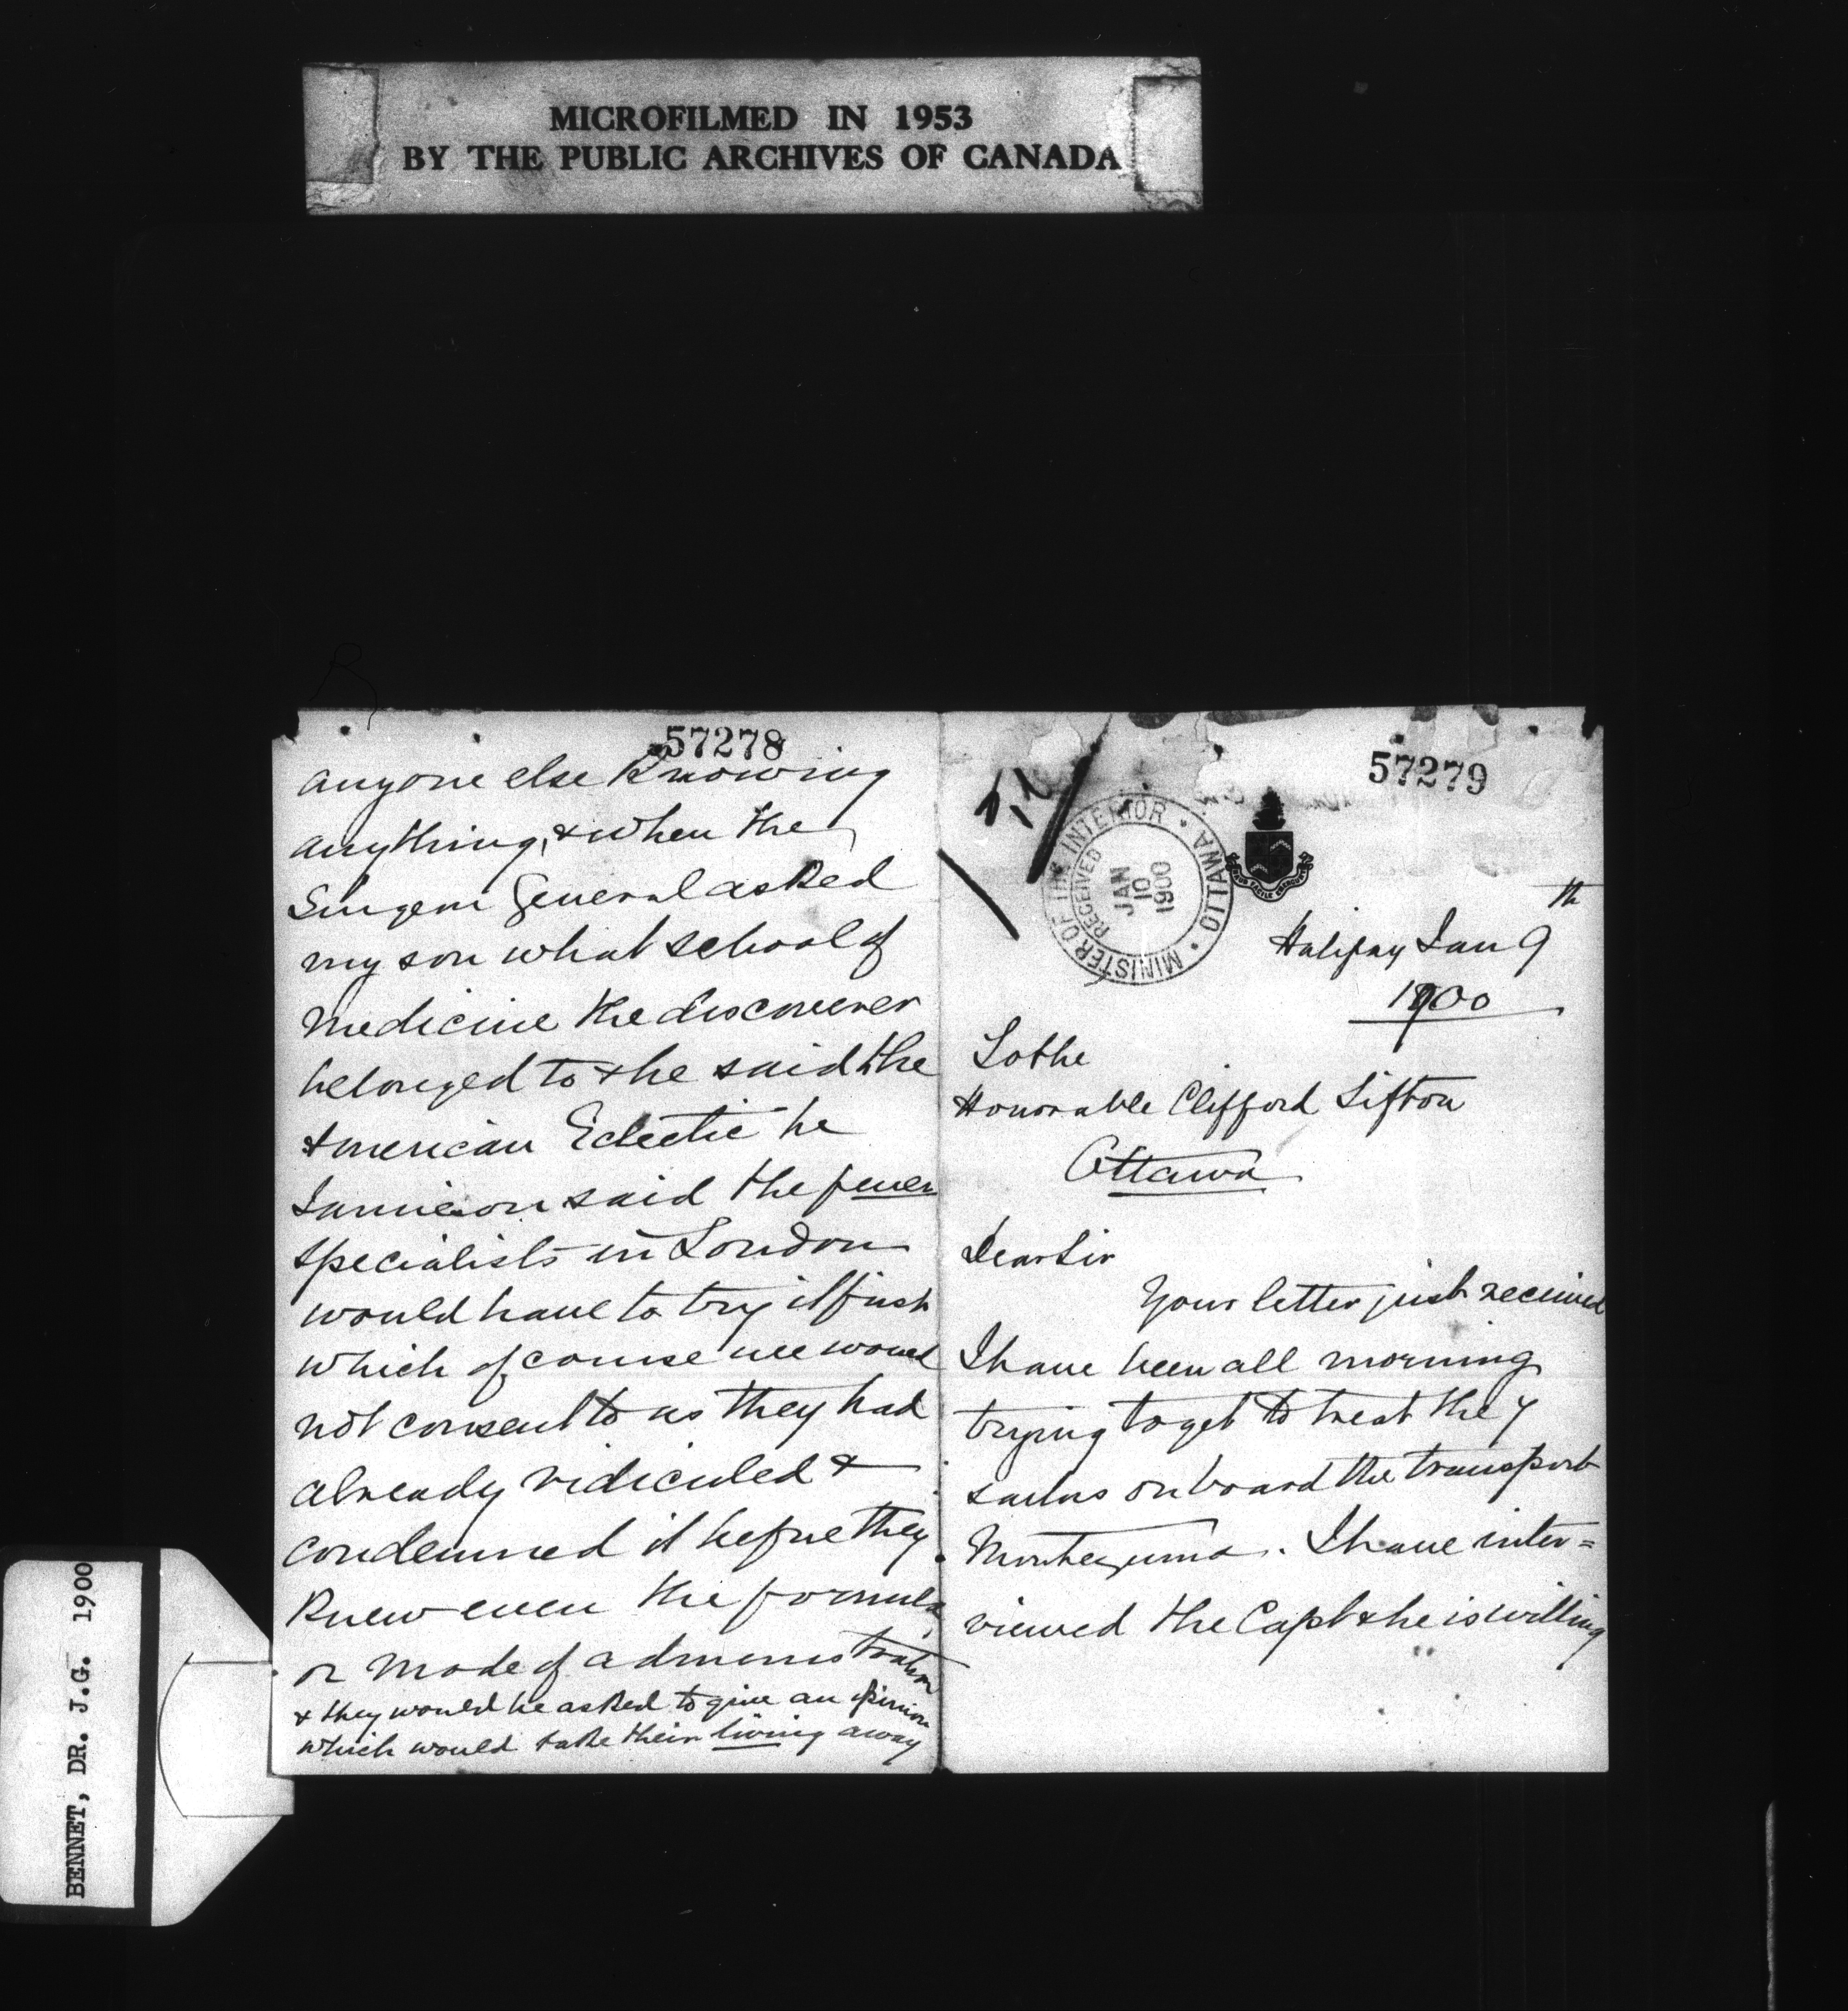 MICROFILMED IN 1953
BY THE PUBLIC ARCHIVES OF CANADA
57278
anyone else knowing
anything, & when the
Surgeon General asked
my son what school of
medicine the discoverer
belonged to & he said the
American Eclectic he
Jamieson said the fever
specialists in London
would have to try it first
which of course we would
not consent to as they had
already ridiculed &
condemned it before they
knew even the formula
or mode of administration
& they would be asked to give an opinion
which would take their living away
57279
MINISTER OF THE INTERIOR • OTTAWA •
RECEIVED
JAN
10
1900
Halifax Jan 9th
1900
To the
Honorable Clifford Sifton
Ottawa
Dear Sir
Your letter just received
I have been all morning
trying to get to treat the 7
sailors on board the transport
Montezuma. I have inter=
viewed the Capt & he is willing
BENNET, DR. J.G. 1900